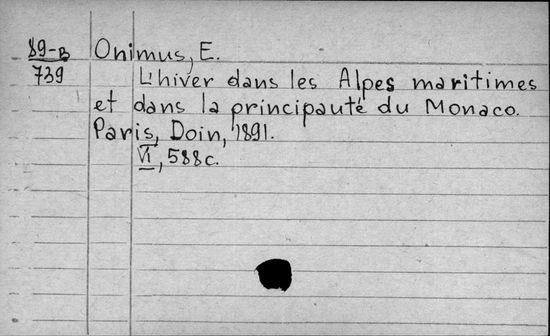 89-В Onimus, E.
739 L'hiver dans les Alpes maritimes
et dans la principauté du Monaco.
Paris, Doin, 1891.
VI, 588c.